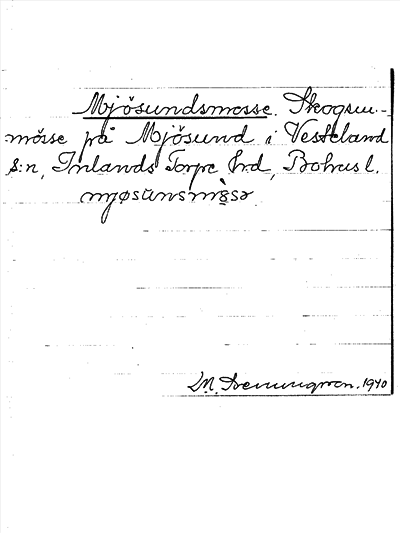 Mjösundsmosse. Skogsm.-
mosse på Mjösund i Vesterland
s:n, Inlands Torpe hrd, Bohusl.
mjøsūnsmɷ̀sə
M. 1940